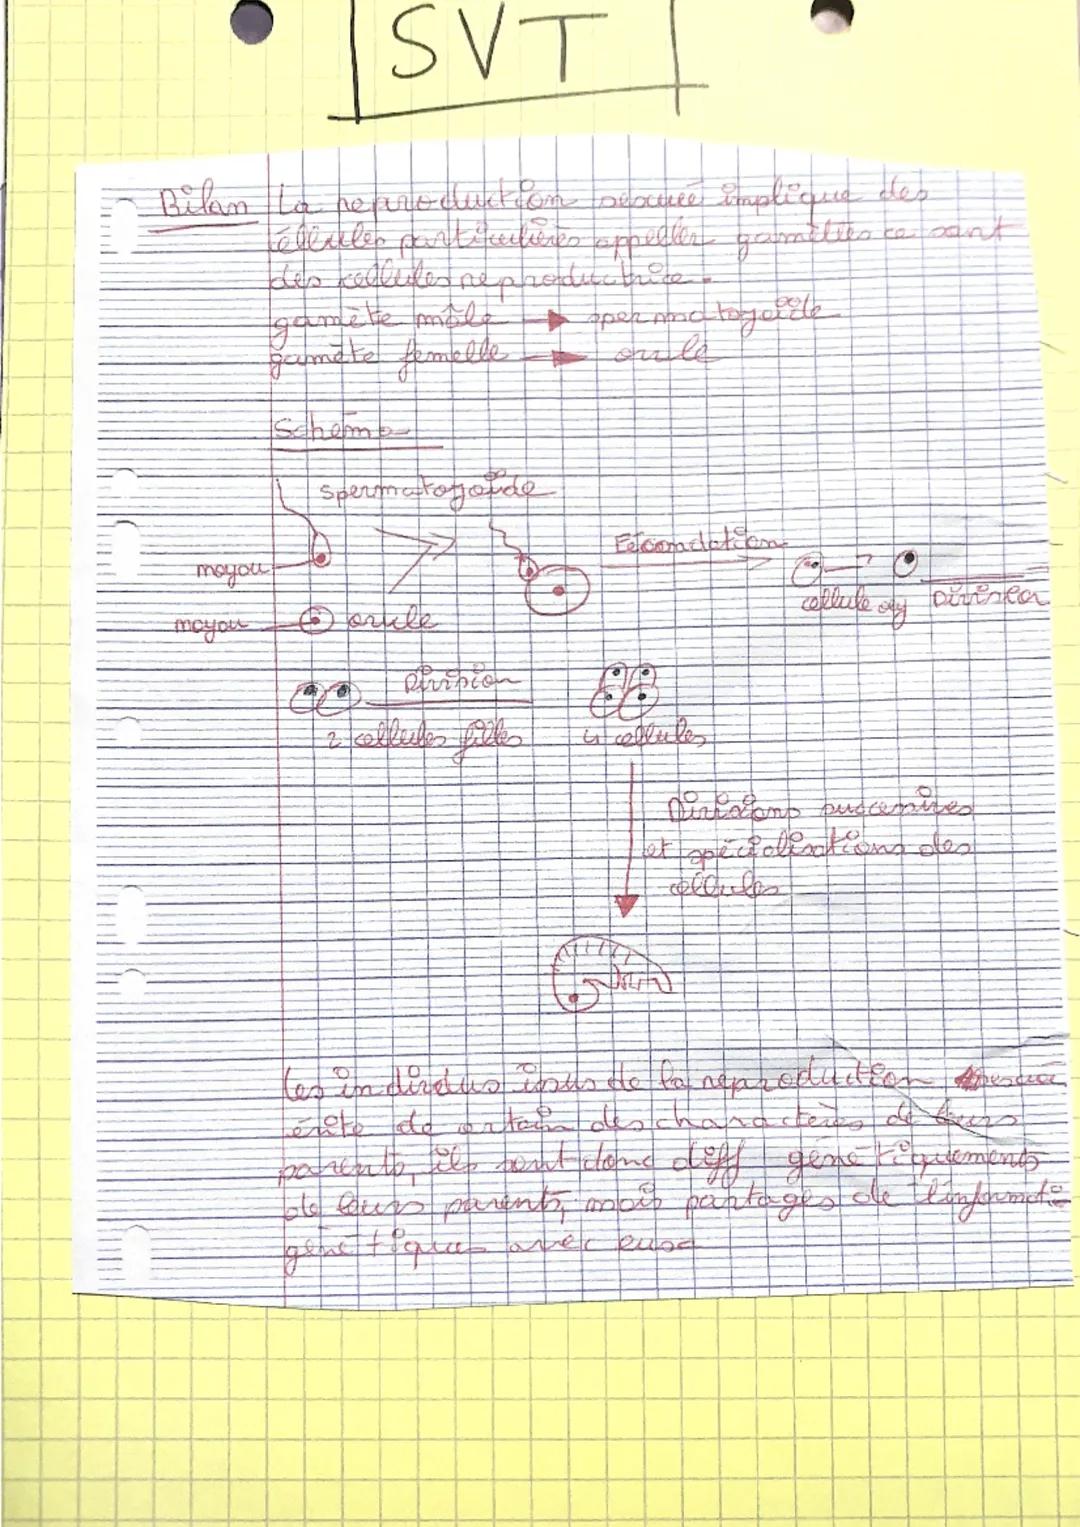 SVT
Bilan La reproduction sexuée implique des
cellules particulières appeller gamètes ce sont
des cellules reproductrice.
gamète mâle → spermatozoïde
gamète femelle → ovule
Schéma
spermatozoïde
Fécondation
noyau
cellule œuf Division
noyau ovule
Division
2 cellules filles 4 cellules
Divisions successives
et spécialisations des
cellules
les individus issus de la reproduction sexué
érite de certain des charactères de leurs
parents, ils sont donc diff génétiquements
de leurs parents, mais partages de l'informat°
génétiques avec eux